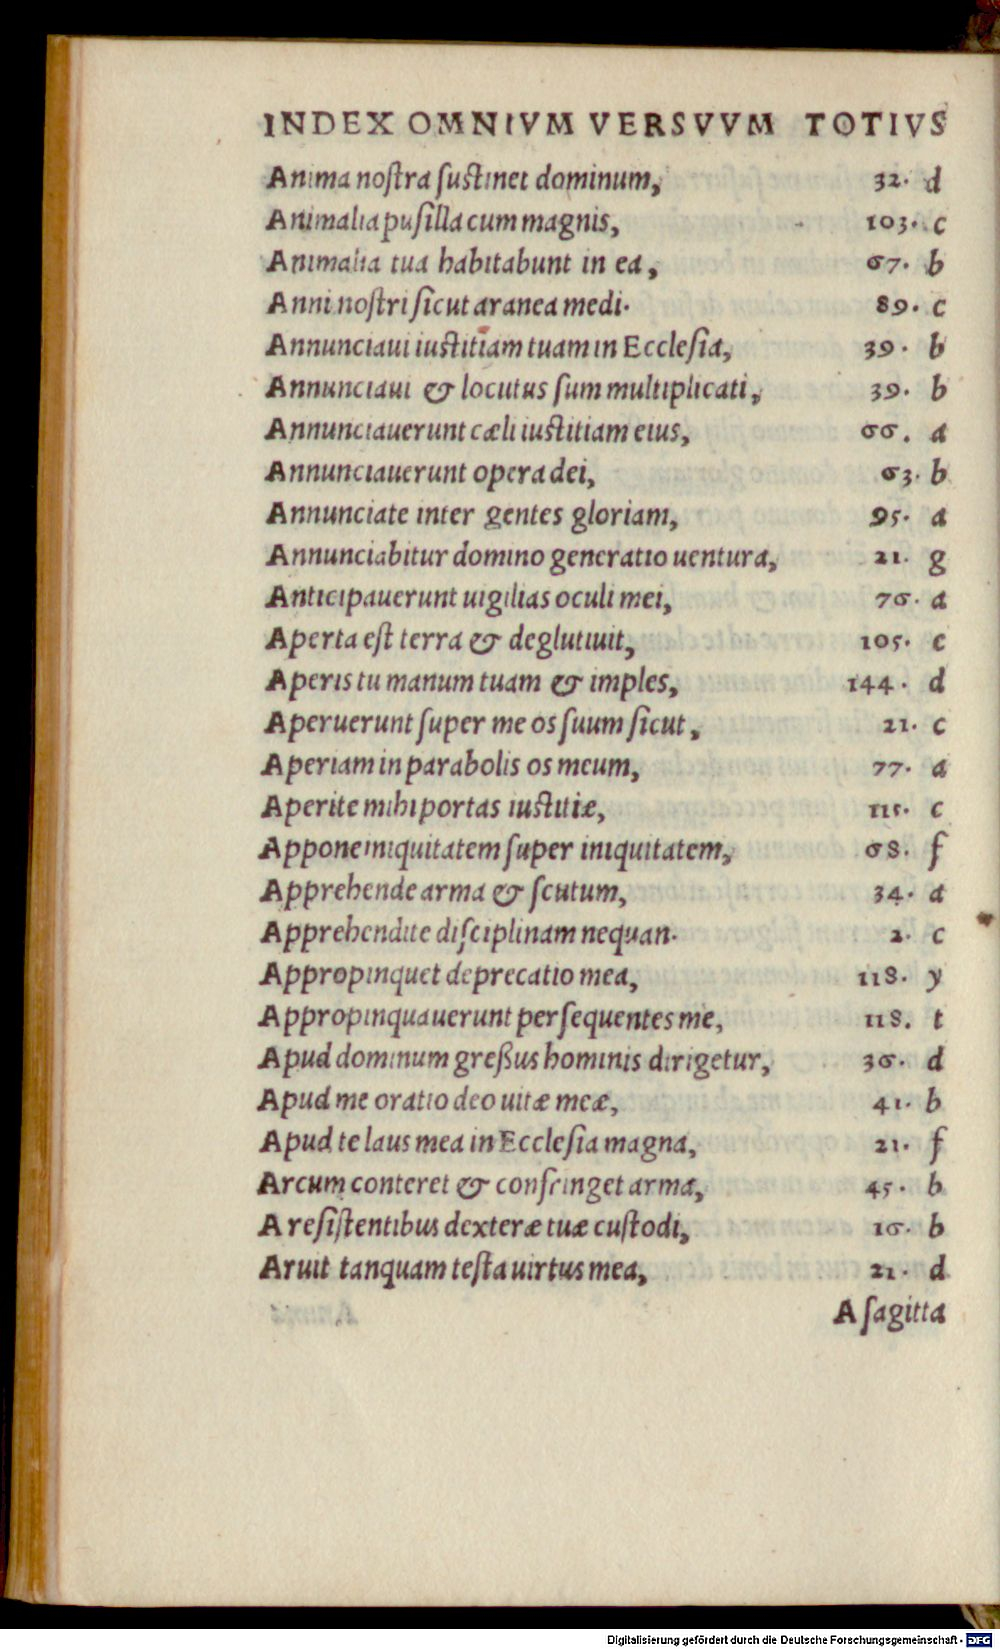 INDEX OMNIVM VERSVVM TOTIVS
Anima noſtra ſuſtinet dominum, 32. d
Animalia puſilla cum magnis, 103. c
Animalia tua habitabunt in ea, 67. b
Anni noſtri ſicut aranea medi. 89. c
Annunciaui iuſtitiam tuam in Eccleſia, 39. b
Annunciaui & locutus ſum multiplicati, 39. b
Annunciauerunt cæli iuſtitiam eius, 66. a
Annunciauerunt opera dei, 63. b
Annunciate inter gentes gloriam, 95. a
Annunciabitur domino generatio uentura, 21. g
Anticipauerunt uigilias oculi mei, 76. a
Aperta eſt terra & deglutiuit, 105. c
Aperis tu manum tuam & imples, 144. d
Aperuerunt ſuper me os ſuum ſicut, 21. c
Aperiam in parabolis os meum, 77. a
Aperite mihi portas iuſtitiæ, 115. c
Appone iniquitatem ſuper iniquitatem, 68. f
Apprehende arma & ſcutum, 34. a
Apprehendite diſciplinam nequan. 2. c
Appropinquet deprecatio mea, 118. y
Appropinquauerunt perſequentes me, 118. t
Apud dominum greßus hominis dirigetur, 36. d
Apud me oratio deo uitæ meæ, 41. b
Apud te laus mea in Eccleſia magna, 21. f
Arcum conteret & confringet arma, 45. b
A reſiſtentibus dexteræ tuæ cuſtodi, 16. b
Aruit tanquam teſta uirtus mea, 21. d
A ſagitta
Digitalisierung gefördert durch die Deutsche Forschungsgemeinschaft - DFG